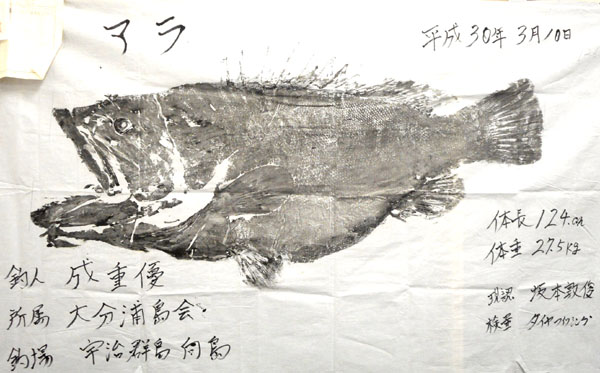 アラ
平成30年3月10日
体長 124.cm
体重 27.5kg
釣人 成重優
所属 大分浦島会
釣場 宇治群島 向島
現認 坂本敦俊
検量 ダイヤフィッシング